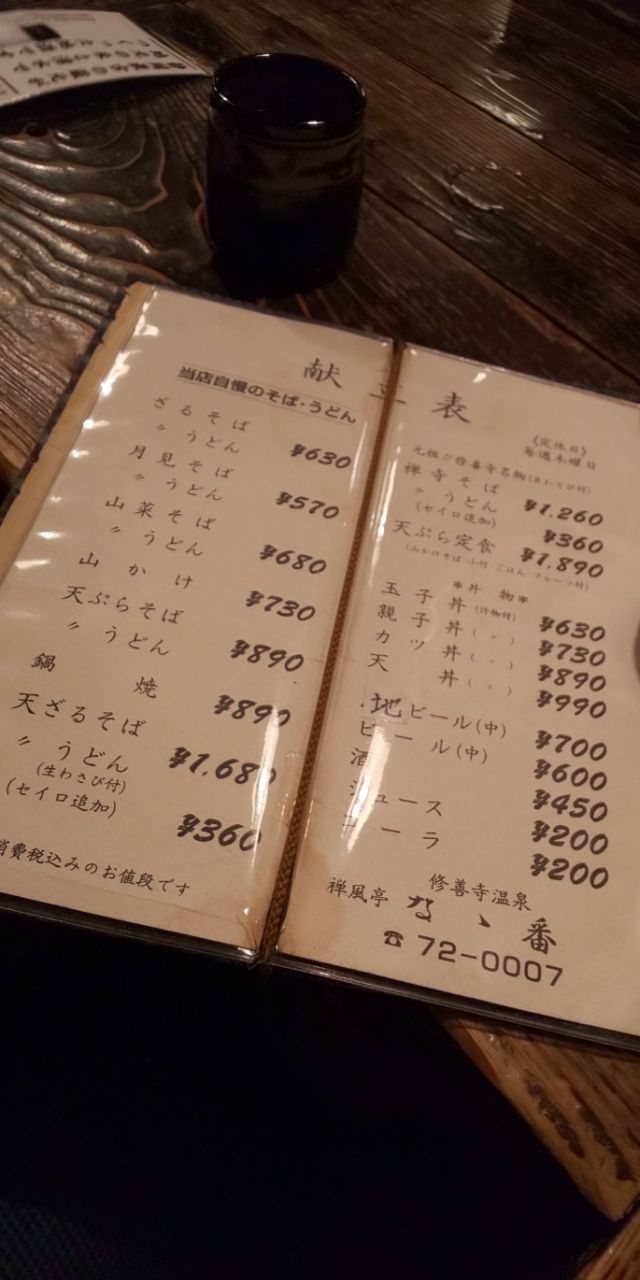 献立表
当店自慢のそば・うどん
ざるそば
〃うどん ¥630
月見そば
〃うどん ¥570
山菜そば
〃うどん ¥680
山かけ ¥730
天ぷらそば
〃うどん ¥890
鍋焼 ¥890
天ざるそば
〃うどん ¥1,680
(生わさび付)
(セイロ追加) ¥360
消費税込みのお値段です
(定休日)
毎週木曜日
元祖!!修善寺名物(生わさび付)
禅寺そば
〃うどん ¥1,260
(セイロ追加) ¥360
天ぷら定食 ¥1,890
(山かけそば・小付 ごはん フルーツ付)
*丼物*
玉子丼(汁物付) ¥630
親子丼(〃) ¥730
カツ丼(〃) ¥890
天丼(〃) ¥990
地ビール(中) ¥700
ビール(中) ¥600
酒 ¥450
ジュース ¥200
コーラ ¥200
修善寺温泉
禅風亭 なゝ番
☎ 72-0007